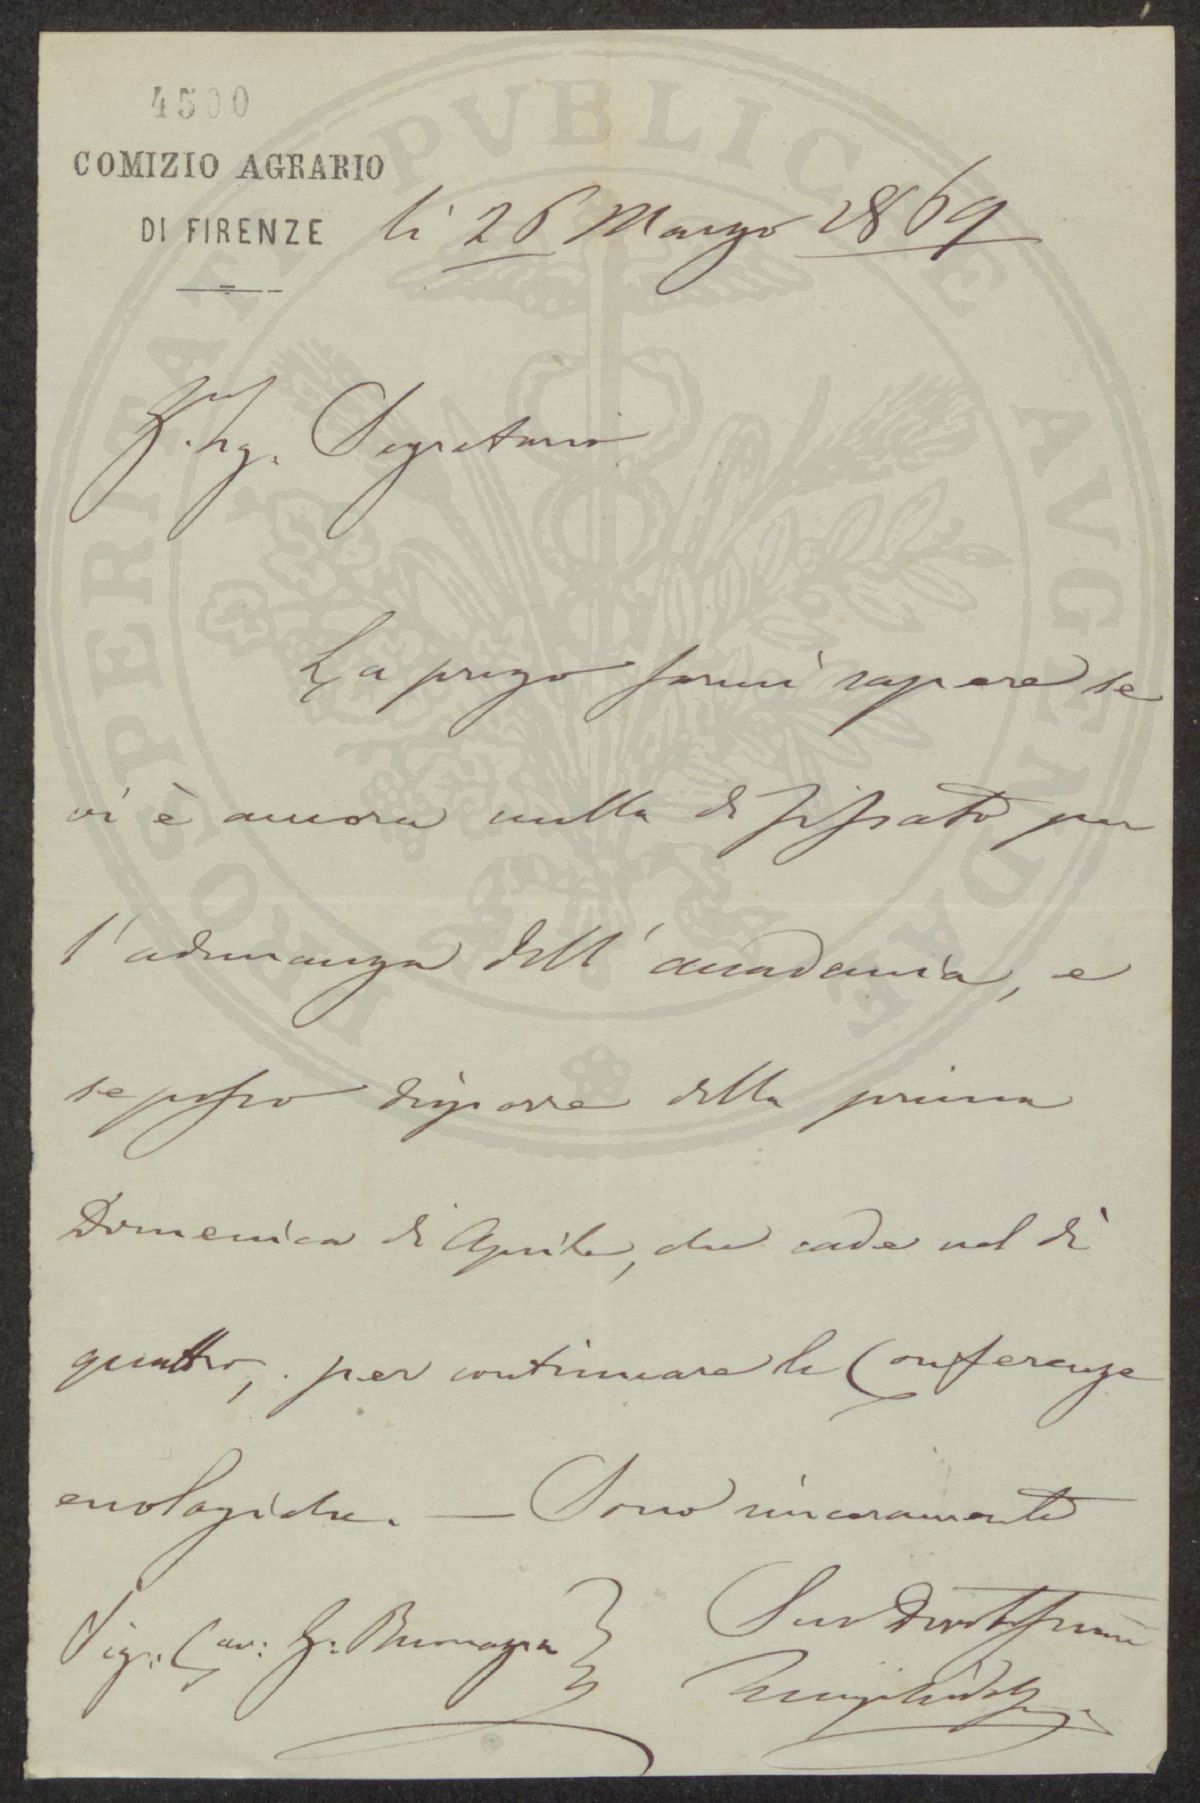 4500
COMIZIO AGRARIO
DI FIRENZE
PROSPERITATI PVBLICAE AVGENDAE
li 26 Marzo 1869
Sig. Segretario
La prego farmi sapere se
vi è ancora nulla di fissato per
l'adunanza dell'accademia, e
se posso disporre della prima
Domenica di Aprile, che cade nel dì
quattro, per continuare le Conferenze
enologiche. — Sono sinceramente
Sig: Cav:
Suo Devotissimo